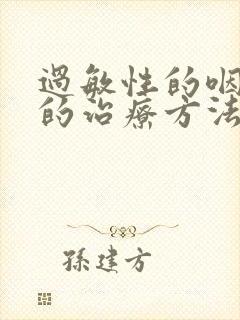 過敏性的咽
的治療方法
孫建方